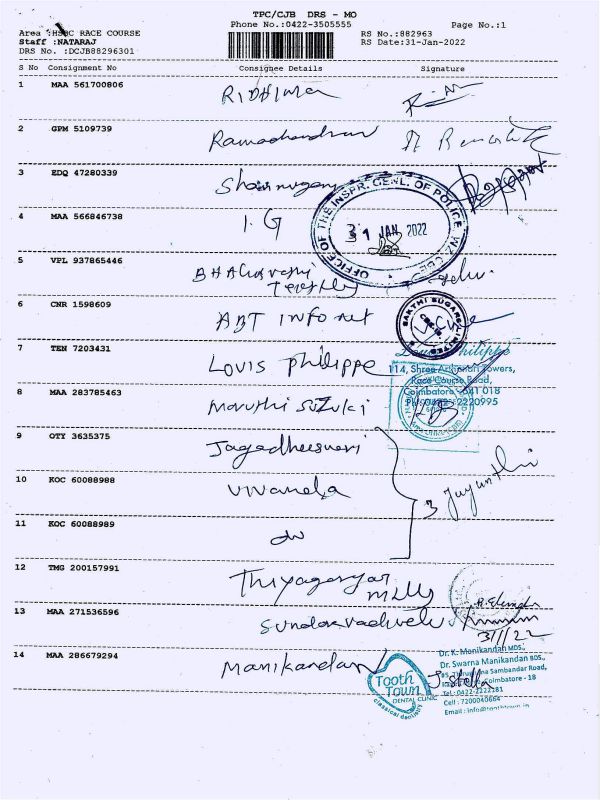 TPC/CJB DRS - MO
Phone No.:0422-3505555
Page No.:1
Area :HSBC RACE COURSE
RS No.:882963
Staff :NATARAJ
RS Date:31-Jan-2022
DRS No. :DCJB88296301
S No Consignment No Consignee Details Signature
1 MAA 561700806 RIDHIMA
2 GPM 5109739 Ramachandran
3 EDQ 47280339 Shanmugam
4 MAA 566846738 I.G
OFFICE OF THE INSPR. GENL. OF POLICE, WZ, CBE
31 JAN 2022
5 VPL 937865446
6 CNR 1598609 ABT info net
SAKTHI SUGARS LIMITED
7 TEN 7203431 LOUIS Philippe
114, Shree Towers,
Race Course Road,
Coimbatore - 641 018
2220995
8 MAA 283785463 Maruthi Suzuki
9 OTY 3635375 Jagadheeswari
10 KOC 60088988
3 Jayanthi
11 KOC 60088989 do
12 TMG 200157991 Thiyagarajar
Mills
13 MAA 271536596 Sundaravadivelu
31/1/22
14 MAA 286679294 Manikandan
Tooth Town
DENTAL CLINIC
classical dentistry
Dr. K. Manikandan MDS.,
Dr. Swarna Manikandan BDS.,
Sambandar Road,
Coimbatore - 18
Tel : 0422-2222181
Cell : 7200040664
J. Stella